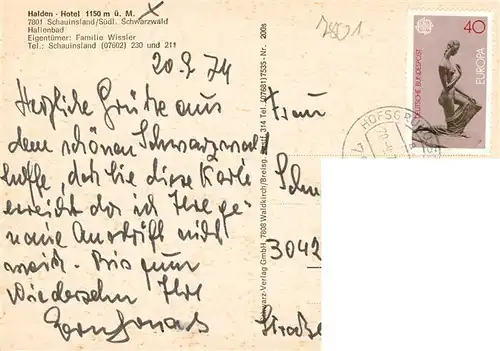 Halden - Hotel 1150 m ü. M.
7801 Schauinsland/Südl. Schwarzwald
Hallenbad
Eigentümer: Familie Wissler
Tel.: Schauinsland (07602) 230 und 211
20.9.74
Herzliche Grüße aus
dem schönen Schwarzwald
hoffe, daß Sie diese Karte
erreicht da ich Ihre ge-
naue Anschrift nicht
weiß. Bis zum
Wiedersehn Ihre
Schwarz-Verlag GmbH, 7808 Waldkirch/Breisg. 314 Tel. (07681) 7535 - Nr. 200s
Frau
3042
Straße
HOFSGRUND
40
EUROPA
DEUTSCHE BUNDESPOST
CEPT